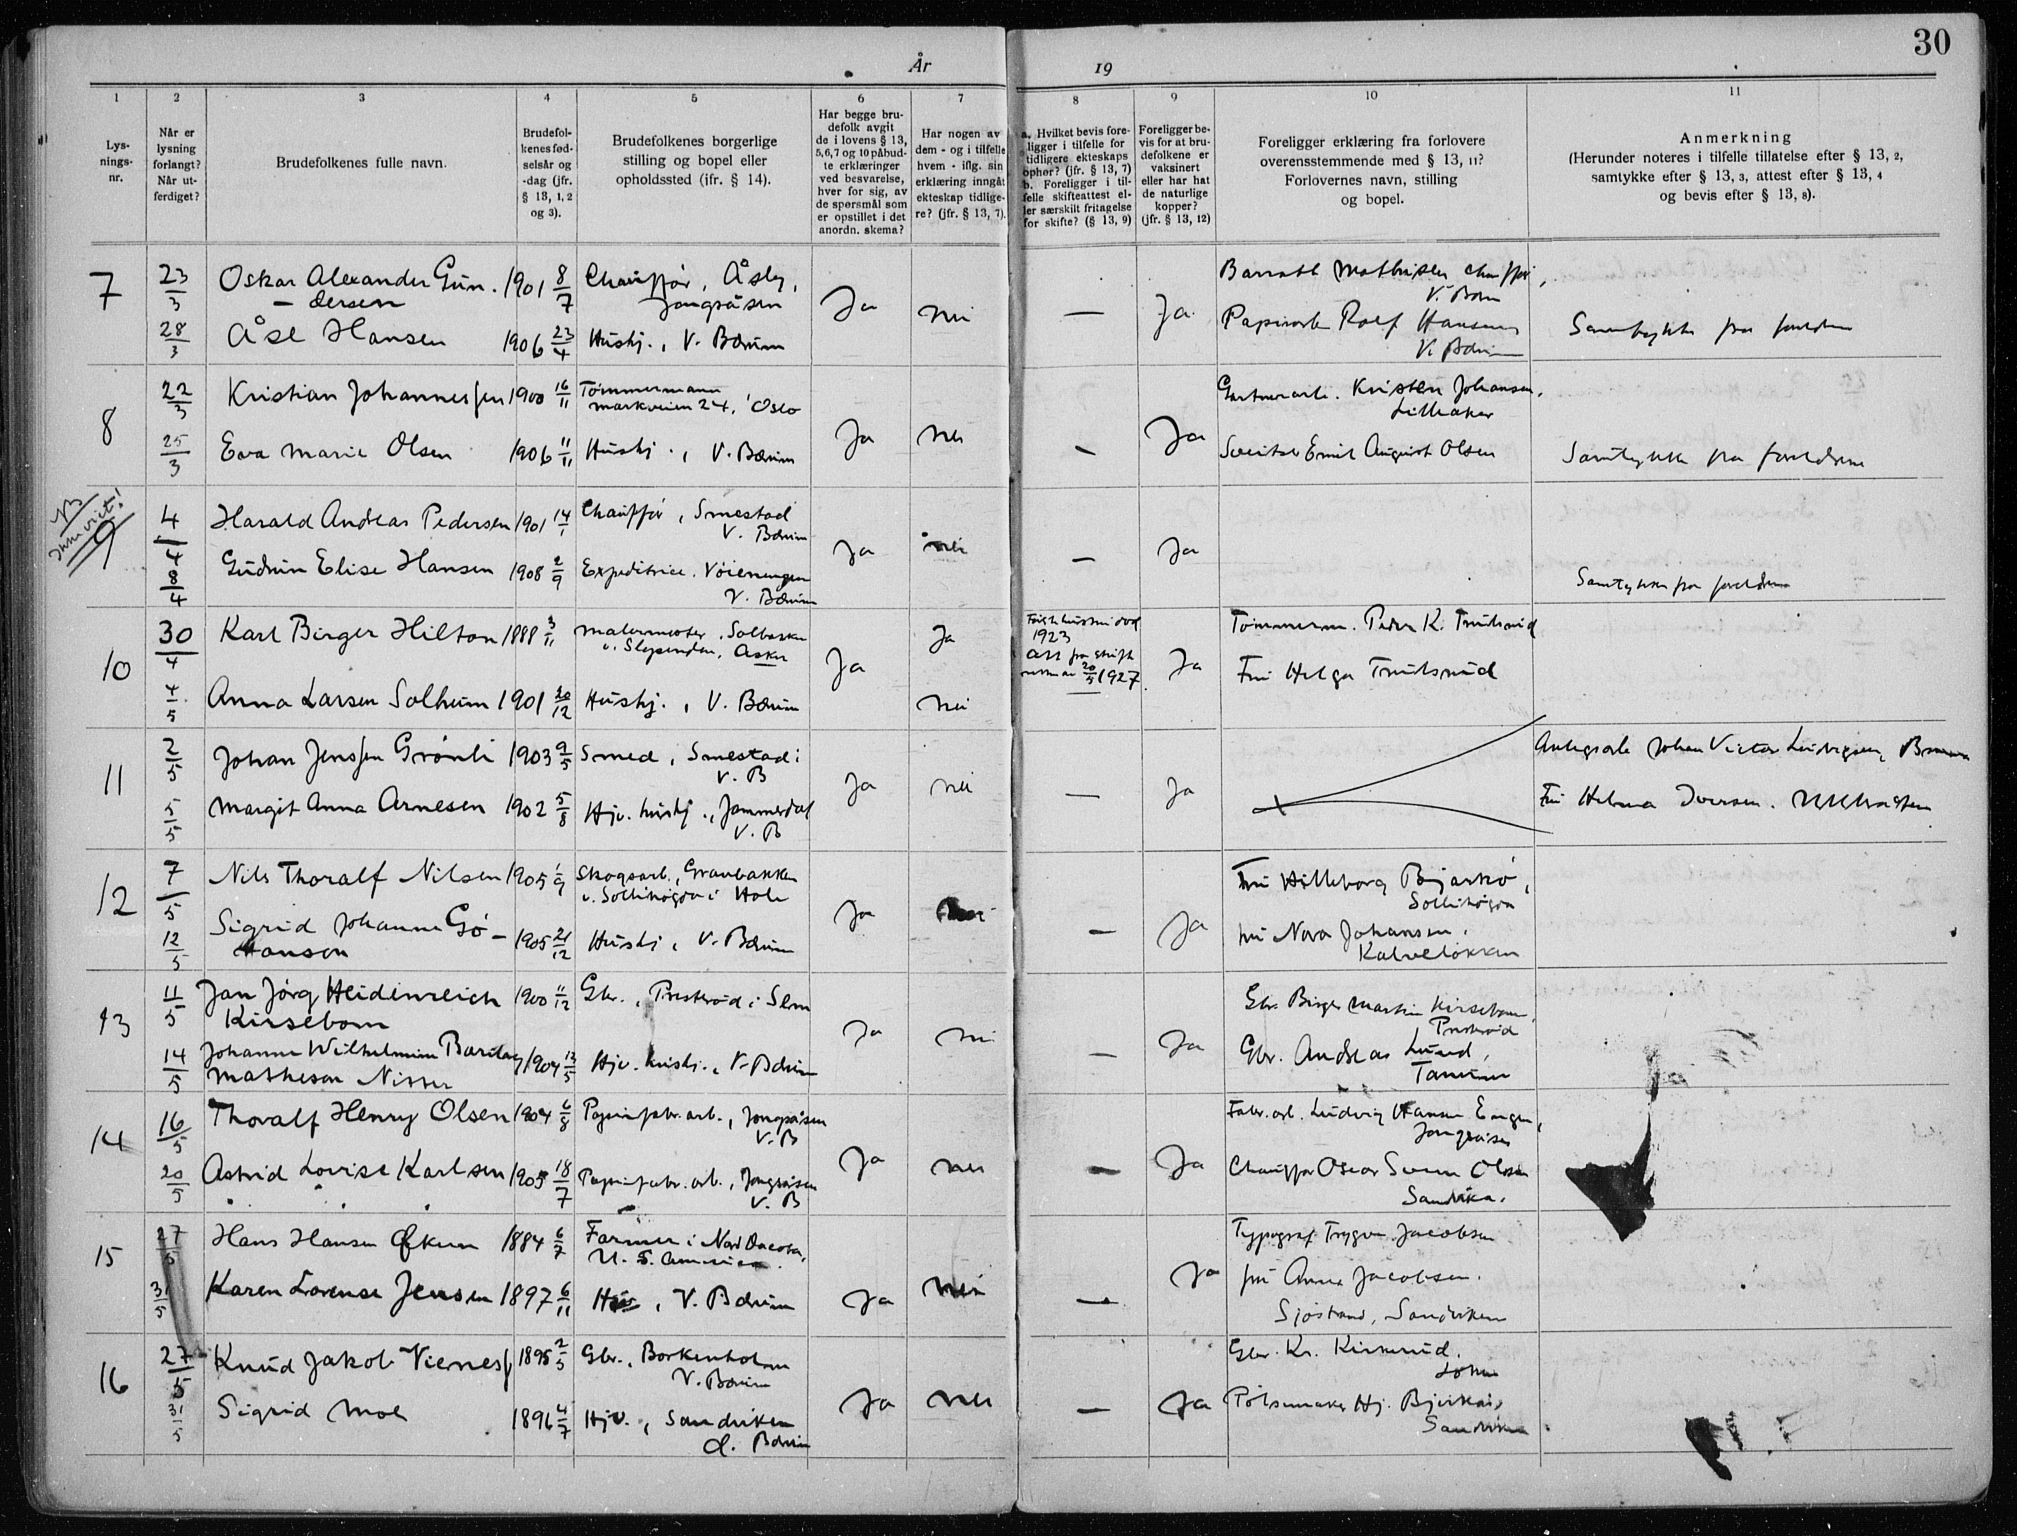 30
År 19
1 2 3 4 5 6 7 8 9 10 11
Lys-
nings-
nr.
Når er
lysning
forlangt?
Når ut-
ferdiget?
Brudefolkenes fulle navn.
Brudefol-
kenes fød-
selsår og
-dag (jfr.
§ 13, 1, 2
og 3).
Brudefolkenes borgerlige
stilling og bopel eller
opholdssted (jfr. § 14).
Har begge bru-
defolk avgit
de i lovens § 13,
5,6,7 og 10 påbud-
te erklæringer
ved besvarelse,
hver for sig, av
de spørsmål som
er opstillet i det
anordn. skema?
Har nogen av
dem - og i tilfelle
hvem - iflg. sin
erklæring inngåt
ekteskap tidlige-
re? (jfr. § 13, 7).
a. Hvilket bevis fore-
ligger i tilfelle for
tidligere ekteskaps
ophør? (jfr. § 13, 7)
b. Foreligger i til-
felle skifteattest el-
ler særskilt fritagelse
for skifte? (§ 13, 9)
Foreligger be-
vis for at bru-
defolkene er
vaksinert
eller har hat
de naturlige
kopper?
(jfr. § 13, 12)
Foreligger erklæring fra forlovere
overensstemmende med § 13, 11?
Forlovernes navn, stilling
og bopel.
Anmerkning
(Herunder noteres i tilfelle tillatelse efter § 13, 2,
samtykke efter § 13, 3, attest efter § 13, 4
og bevis efter § 13, 8).
7 23/3 Oskar Alexander Gun-
dersen 1901 8/7 Chauffør, Åsly,
Jongsåsen Ja nei — Ja
V. Bærum
28/3 Åse Hansen 1906 23/4 Hushj., V. Bærum
Rolf Hansen
V. Bærum
Samtykke fra foreldre
8 22/3 Kristian Johannessen 1900 16/11 Tømmermann
Markveien 24, Oslo Ja nei — Ja
Kristen Johansen,
Lilleaker
25/3 Eva Marie Olsen 1906 11/11 Hushj., V. Bærum
Emil Olsen
Samtykke fra foreldrene
NB
9 4/4 Harald Andreas Pedersen 1901 14/1 Chauffør, Smestad
V. Bærum Ja nei — Ja
8/4 Gudrun Elise Hansen 1908 2/9 Expeditrice, Vøienenga
V. Bærum
Samtykke fra foreldrene
10 30/4 Karl Birger Hilton 1888 3/11 Malermester, Solbakken
v. Slependen, Asker Ja Ja
1923
20/5 1927 Ja
Tømmerm. Peder K. Trulsrud
4/5 Anna Larsen Solheim 1901 30/12 Hushj., V. Bærum nei —
Fru Helga Trulsrud
11 2/5 Johan Jenssen Grønli 1903 9/5 Smed, Smestad i
V. B Ja nei — Ja
Johan Victor Ludvigsen,
5/5 Margit Anna Arnesen 1902 5/8 Hjv. hushj., Jammerdal
V. B
Fru Helma Iversen.
12 7/5 Nils Thoralf Nilsen 1905 1/9 Skogsarb., Granbakken
v. Sollihøgda i Hole Ja nei — Ja
Fru Hilleborg Bjarkø,
Sollihøgda
12/5 Sigrid Johanne Gø-
Hansen 1905 21/12 Hushj., V. Bærum
fru Nora Johansen,
Kalveløkken
13 11/5 Jan Jørg Heidenreich
Kirsebom 1900 11/12 Gbr., Presterød i Sem Ja nei — Ja
Gbr. Birger Martin Kirsebom,
Presterød
14/5 Johanne Wilhelmine Barclay
Matheson Nisser 1904 13/5 Hjv. hushj., V. Bærum
Gbr. Andreas Lund,
Tanum
14 16/5 Thoralf Henry Olsen 1904 6/8 Papirfabr.arb., Jongsåsen
V. B Ja nei — Ja
Fabr.arb. Ludvig Hansen Engen,
Jongsåsen
20/5 Astrid Lovise Karlsen 1905 18/7 Papirfabr.arb., Jongsåsen
V. B
Chauffør Oscar Olsen
Sandvika.
15 27/5 Hans Hansen 1884 6/7 Farmer i Nord Dacota,
U. S. America Ja nei — Ja
Typograf Trygve Jacobsen
31/5 Karen Lorense Jensen 1897 6/11 , V. Bærum
fru Anna Jacobsen.
Sjøstrand, Sandviken
16 27/5 Knud Jakob Viernes 1895 2/5 Gbr., Borkenholm
V. Bærum Ja nei — Ja
Gbr. Kr. Kirkerud,
31/5 Sigrid Moe 1896 4/7 Hjv., Sandviken
Ø. Bærum
Pølsemaker Hj. Bjerkås,
Sandvika